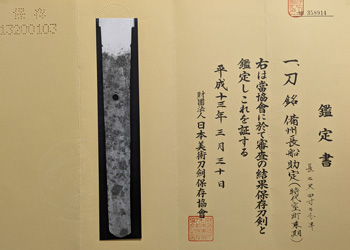 鑑定書
一、刀 銘 備州長船助定(時代室町末期)
長 二尺
右は當協會に於て審査の結果保存刀剣と
鑑定しこれを証する
平成十三年三月三十日
財團法人 日本美術刀剣保存協會
保存
13200103
№ 358914